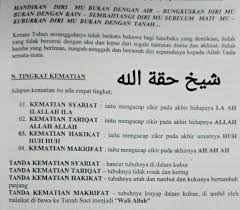 MANDIKAN DIRI MU BUKAN DENGAN AIR - BUNGKUSKAN DIRI MU
BUKAN DENGAN KAIN - SEMBAHYANGI DIRI MU SEBELUM MATI - MU
KUBURKAN DIRI MU BUKAN DENGAN TANAH...
Kerana Tuhan sesungguhnya telah berkata bahawa bagi hambaku yang demikian, itulah
yang tidak bercerai dengan aku dan lepas dari segala tuntutan dunia dan akhirat. itulah
hamba yang beriman, sungguh-sungguh dan berserah diri sepenuhnya kepada Allah Taala
semata-mata.
شيخ حقة الله
N. TINGKAT KEMATIAN
Adapun kematian itu ada empat tingkat:
01. KEMATIAN SYARIAT - iaitu mengucap zikir pada akhir hidupnya LA AH
ILALLAH ILA
02. KEMATIAN TARIQAT - iaitu mengucap zikir pada akhir hidupnya ALLAH
ALLAH ALLAH
03. KEMATIAN HAKIKAT - iaitu mengucap zikir pada akhir umurnya HUH
HUH HUH
04. KEMATIAN MAKRIFAT - iaitu mengucap zikir pada akhir umurnya AH AH
AH
TANDA KEMATIAN SYARIAT - hancur tubuhnya di dalam kubur
TANDA KEMATIAN TARIQAT - tubuhnya tidak rosak di dalam kubur
TANDA KEMATIAN HAKIKAT - tubuh ada rambut dan kukunya bertambah
panjang
TANDA KEMATIAN MAKRIFAT - tubuhnya lenyap dalam kubur, di ambil oleh
malaikat di bawa ke Tanah Suci menjadi "Wali Allah"